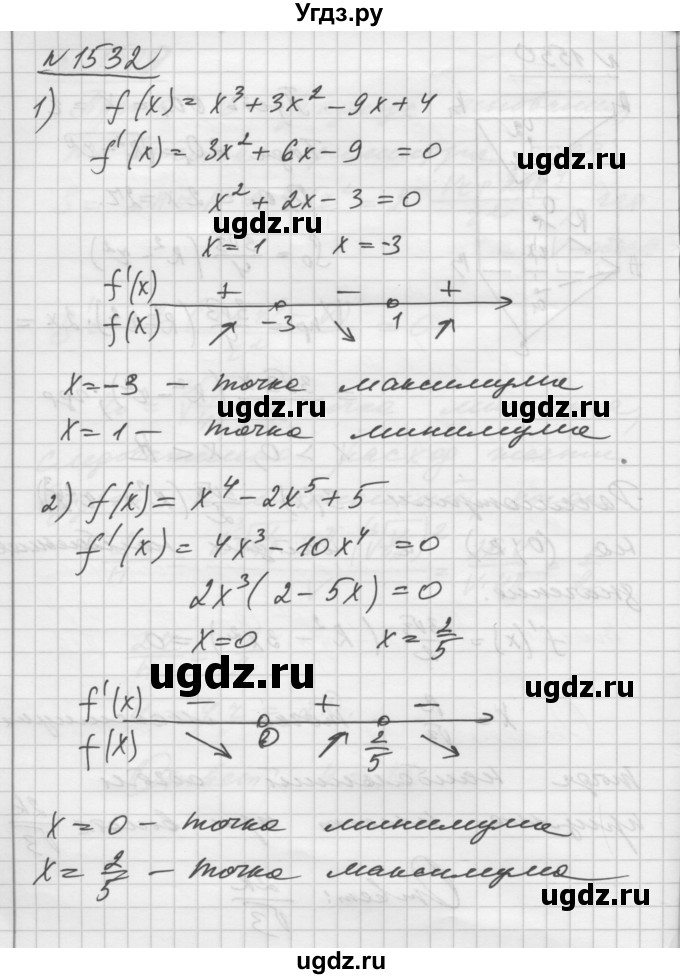 Угдз.ру
№1532
1) f(x) = x³ + 3x² - 9x + 4
f'(x) = 3x² + 6x - 9 = 0
ugdz.ru
x² + 2x - 3 = 0
ugdz.ru
x = 1 x = -3
f'(x) + - +
f(x) ↗ -3 ↘ 1 ↗
ugdz.ru
x = -3 - точка максимума
ugdz.ru ugdz.ru
x = 1 - точка минимума.
2) f(x) = x⁴ - 2x⁵ + 5
f'(x) = 4x³ - 10x⁴ = 0
ugdz.ru
2x³(2 - 5x) = 0
x = 0 x = 2/5
ugdz.ru
f'(x) - + -
ugdz.ru
f(x) ↘ 0 ↗ 2/5 ↘
x = 0 - точка минимума
x = 2/5 - точка максимума
ugdz.ru
ugdz.ru